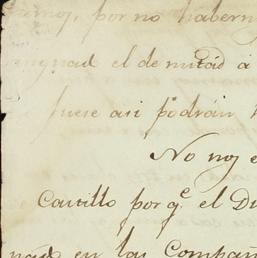 por no habern
el de mitad a
fuese asi podrán
No nos e
Castillo por q.e el Du
en las Compañ